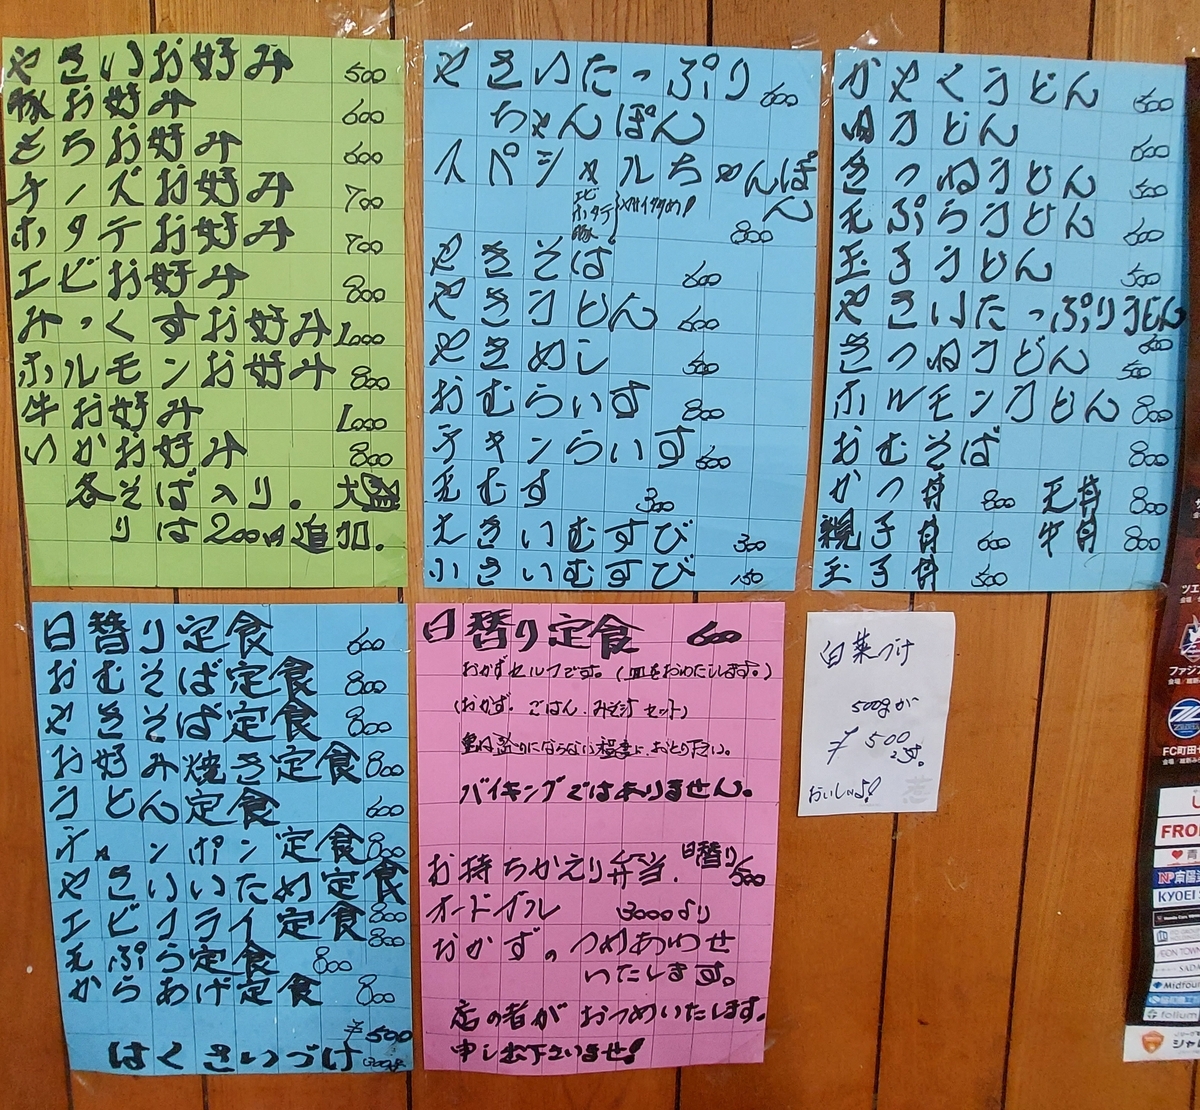 やさいお好み 500
豚お好み 600
もちお好み 600
チーズお好み 700
ホタテお好み 700
エビお好み 800
みっくすお好み 1,000
ホルモンお好み 800
牛お好み 1,000
いかお好み 800
各そば入り。大盛
りは200円追加.
やさいたっぷり 600
ちゃんぽん
スペシャルちゃんぽ
ん
エビ
ホタテ
豚
800
やきそば 600
やきうどん 600
やきめし 500
おむらいす 800
チキンらいす 600
天むす 300
大きいむすび 300
小さいむすび 150
かやくうどん 500
肉うどん 600
きつねうどん 500
天ぷらうどん 600
玉子うどん 500
やさいたっぷりうどん
600
きつねうどん 500
ホルモンうどん 800
おむそば 800
かつ丼 800 天丼 800
親子丼 600 牛丼 800
玉子丼 500
日替り定食 600
おむそば定食 800
やきそば定食 800
お好み焼き定食 800
うどん定食 600
チャンポン定食 800
やさいいため定食
800
エビフライ定食 800
天ぷら定食 800
からあげ定食 800
¥500
はくさいづけ
日替り定食 600
おかずセルフです。(皿をおわたしします。)
(おかず. ごはん. みそ汁 セット)
山盛りにならない程度に、おとり下い。
バイキングではありません。
お持ちかえり弁当. 日替り 500
オードブル 3000より
おかず。つめあわせ
いたします。
店の者がおつめいたします.
申し出下さいませ!
白菜づけ
500gが
¥500
です。
おいしいよ!
ツエ
ファジ
FC町田
FRO
青
南陽
KYOEI
Midfour
follum
ジャ